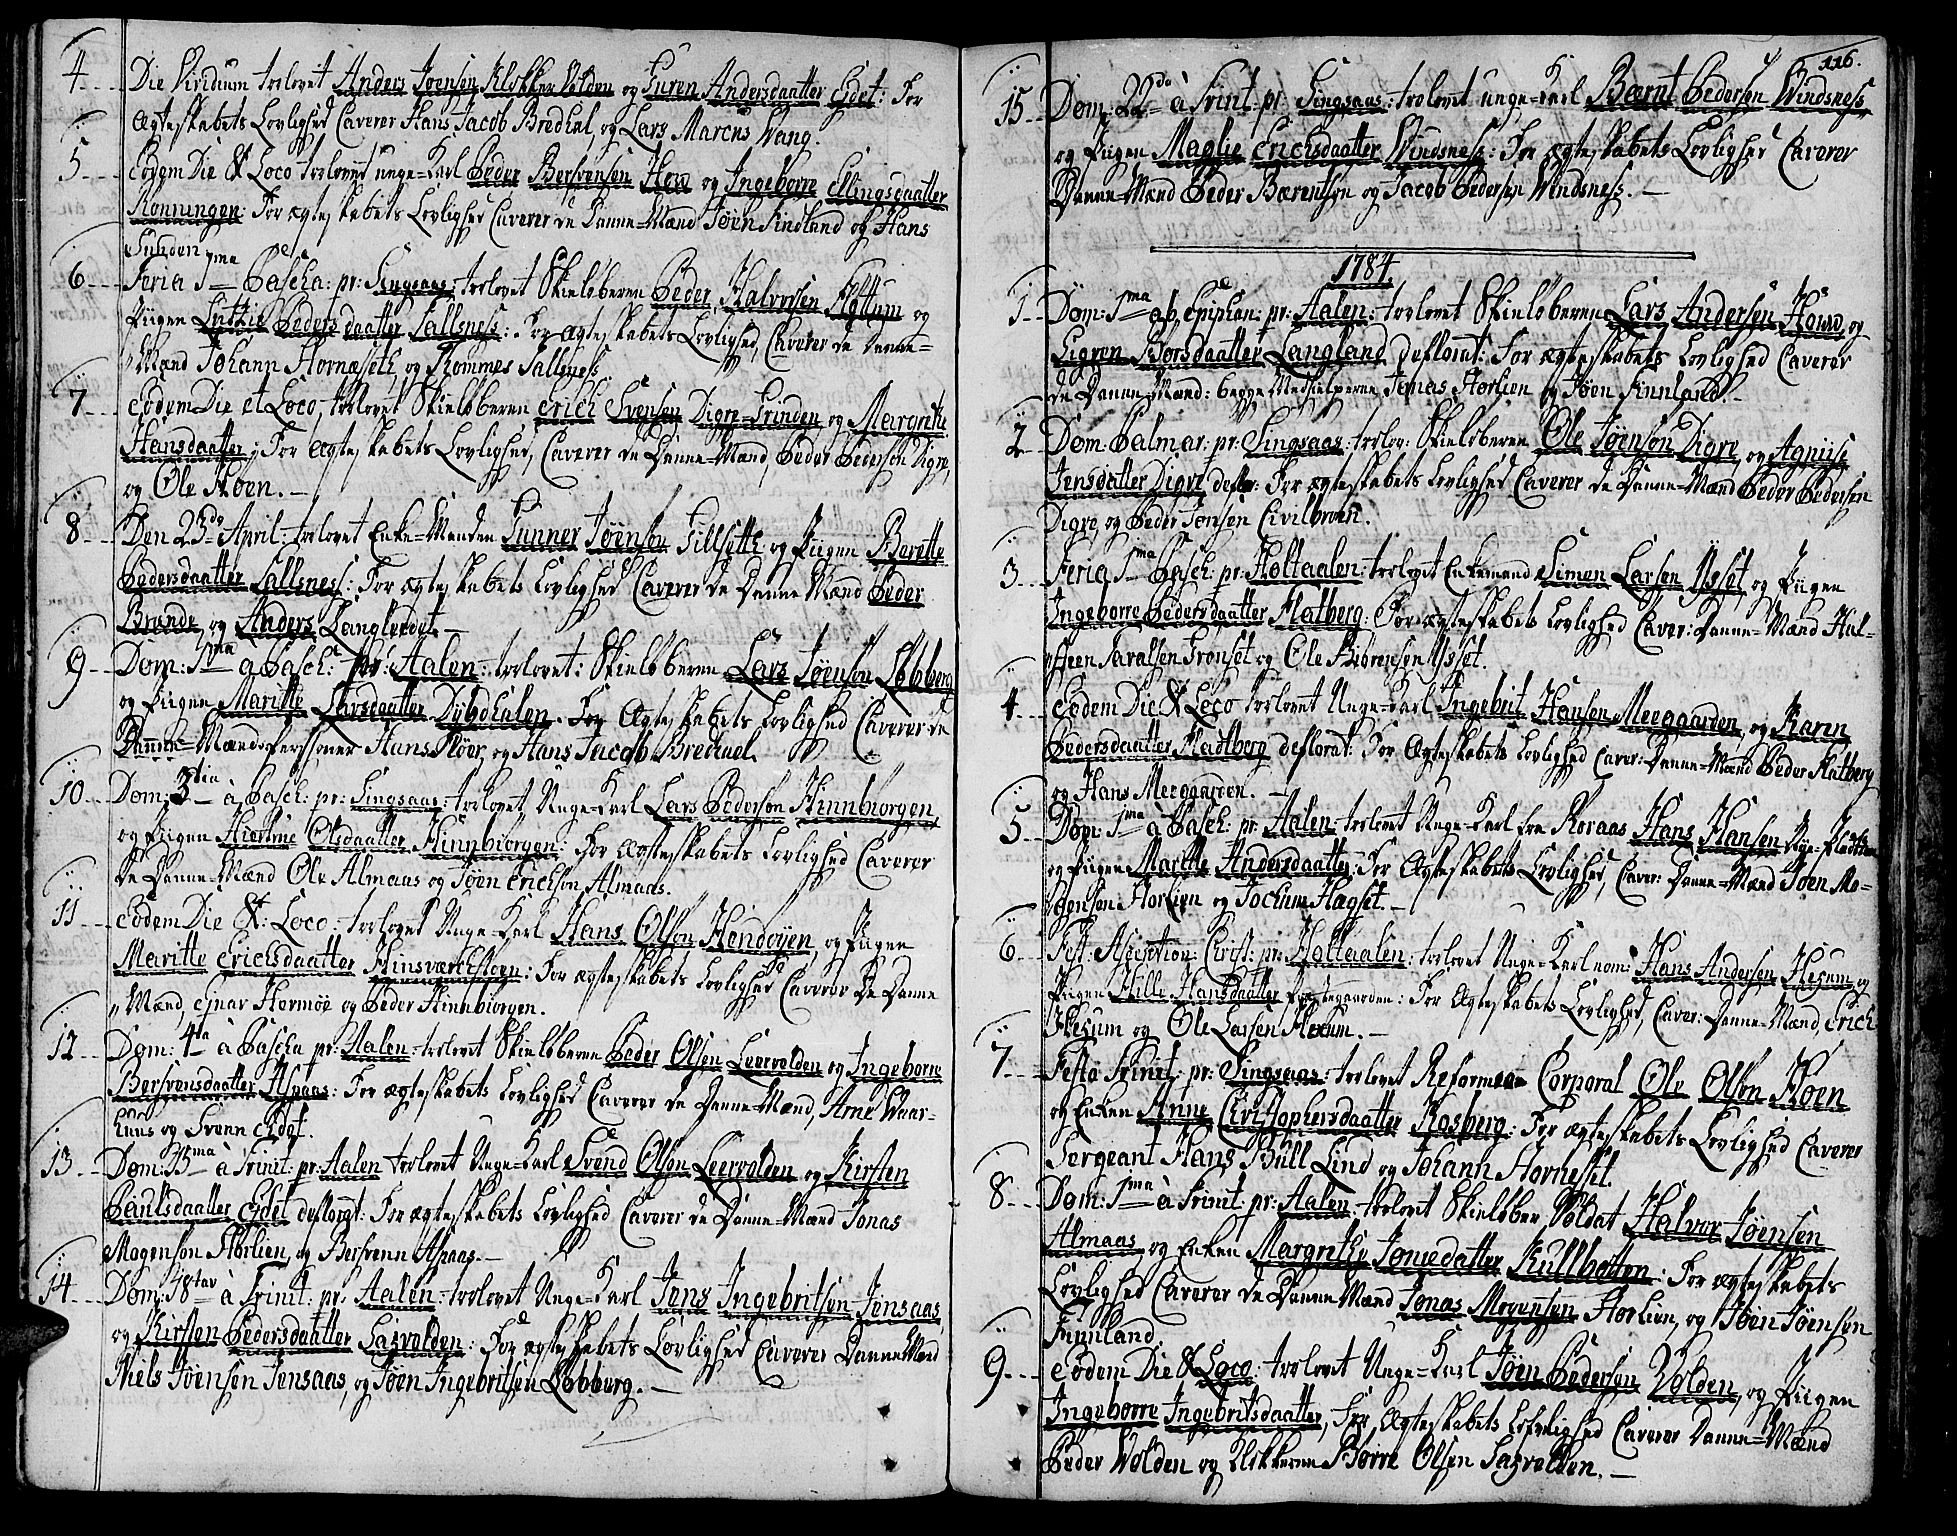 4. Die Viridium trolovet Anders Joensen Klokker Volden og Guren Andersdaatter Eidet: For
Ægteskabets Lovlighed Caverer Hans Jacob Bredhal, og Lars Marcus Wang.
5. Eodem Die & Loco trolovet unge-Karl Peder Bersvensen Hou og Ingeborre Ellingsdaatter
Rønningen: For ægteskabets Lovlighed Caverer de Danne-Mænd Jøen Findland og Hans
6. Feria 1ma Pascha: pr: Singsaas: trolovet Skieløberen Peder Halvorsen Flottum og
Piigen Sidsele Pedersdaatter Sallsness: For Ægteskabets Lovlighed, Caverer de Danne-
Mænd Johann Hornæseth, og Rommes Sallsness
7. Eodem Die et Loco, trolovet Skieløberen Erich Svensen Digre-Grinden og Margrethe
Hansdaatter: For Ægteskabets Lovlighed, Caverer de Danne-Mænd, Peder Pederson Digre,
og Ole Høen.
8. Den 23de April: trolovet Enke-Manden Gunner Joensen Fillseth og Piigen Berette
Pedersdaatter Sallsness: For ægteskabets Lovlighed Caverer de Danne Mænd Peder
Brænde, og Anders Langledet.
9. Dom: 1ma à Pasch: pr: Aalen: trolovet: Skieløberen Lars Joenson Løbberg
og Piigen Maritte Larsdaatter Dybdhalen. For Ægteskabets Lovlighed Caverer de
Danne-Mænds Personer Hans Floer, og Hans Jacob Bredhael.
10. Dom: 3tia à Pasch: pr: Singsaas: trolovet, Unge-Karl Lars Pederson Hinnbiorgen,
og Piigen Hiertrue Olsdaatter Hinnbiorgen: For Ægteskabets Lovlighed Caverer
De Danne-Mænd Ole Almaas og Jøen Erickson Almaas.
11. Eodem Die &: Loco: trolovet Unge-Karl Hans Olson Hendøyen, og Piigen
Maritte Erichsdaatter Hinsværchstøen: For ægteskabets Lovlighed Caverer De Danne
Mænd, Ejnar Hormöe og Peder Hinnbiorgen.
12. Dom: 4ta à Pascha pr: Aalen: trolovet Skieløberen Peder Olsen Leervolden og Ingeborre
Bersvensdaatter Aspaas: For ægteskabets Lovlighed Caverer de Danne-Mænd, Arne Waar-
huus og Svenn Eidet.
13. Dom: 15ma à Trinit: pr: Aalen trolovet Unge-Karl Svend Olson Leervolden og Kirsten
Poulsdaatter Eidet deflorat: For ægteskabets Lovlighed Caverer de Danne-Mænd Jonas
Mogenson Horlien, og Bersvenn Aspaas.
14. Dom: 18tav à Trinit: pr: Aalen: trolovet Unge-Karl Jens Ingebritsen Jensaas,
og Kirsten Pedersdaatter Gasvolden: For ægteskabets Lovlighed Caverer Danne Mænd
Niels Joensen Jensaas, og Jøen Ingebritsen Løbberg.
116.
15. Dom: 22da à Trinit: pr: Singsaas: trolovet unge-Karl Bærnt Pedersen Windsness
og Piigen Maglie Erichsdaatter Windsness: For ægteskabets Lovlighed Caverer
Danne-Mænd Peder Bærentson og Jacob Pedersen Windsness.
1784.
1. Dom: 1ma ab Epiphan: pr: Aalen: trolovet Skieløberen Lars Andersen Houv, og
Sigren Borsdaatter Langland deflorat: For ægteskabets Lovlighed Caverer
de Danne Mænd: begge Medhielperne Jonas Horlien og Jøen Finnland.
2. Dom: Palmar: pr: Singsaas: trolov: Skieløberen Ole Jøenson Digre, og Agniise
Jensdatter Digre deflor: For ægteskabets Lovlighed Caverer de Danne-Mænd Peder Pedersen
Digre, og Peder Jonsen Civilbroen.
3. Feria 1ma Pasch: pr: Holtaalen: trolovet Enkemand Simen Larsen Ysset, og Piigen
Ingeborre Pedersdaatter Flatberg: For ægteskabets Lovlighed Caver: Danne-Mænd Hal-
steen Taralsen Tronset og Ole Biørensen Ysset.
4. Eodem Die & Loco trolovet Unge-Karl Ingebrit Hansen Meegaarden, og Karen
Pedersdaatter Fladtberg deflorat: For Ægteskabets Lovlighed Caver: Danne-Mænd Peder Flatberg
og Hans Meegaarden.
5. Dom: 1ma à Pasch: pr: Aalen: trolovet Unge-Karl fra Roraas Hans Hansen Nye-Pladtsen
og Piigen Maritte Andersdaatter: For Ægteskabets Lovlighed, Caver: Danne-Mænd Joen Mo-
gensøn Horlien og Jochum Hægset.
6. Fest: Ascention: Christ: pr: Holtaalen: trolovet Unge-Karl nom: Hans Andersen Hexum og
Piigen Hille Hansdaatter Præstegaarden: For Ægteskabets Lovlighed, Caver: Danne-Mænd, Erich
Hexum og Ole Larsen Hexum.
7. Festo Trinit: pr: Singsaas: trolovet Reformee Corporal Ole Olson Høen
og Enken Anne Christophersdaatter Rosberg: For ægteskabets Lovlighed Caverer
Sergeant Hans Büll Lind og Johann Hornesset.
8. Dom: 1ma à Trinit: pr: Aalen: trolovet Skieløber Soldat Halvor Jøensen
Almaas, og Enken Margrethe Jonsedatter Kullbotten: For ægteskabets
Lovlighed Caverer de Danne Mænd Jonas Mogensen Horlien, og Jøen Jøensen
Finnland.
9. Eodem Die & Loco: trolovet Unge-Karl Jøen Pedersen Volden, og Piigen
Ingeborre Ingebritsdaatter, For, Ægteskabets Lovlighed Caverer Danne-Mænd
Peder Volden og Klokkeren Børre Olsen Gasvolden.